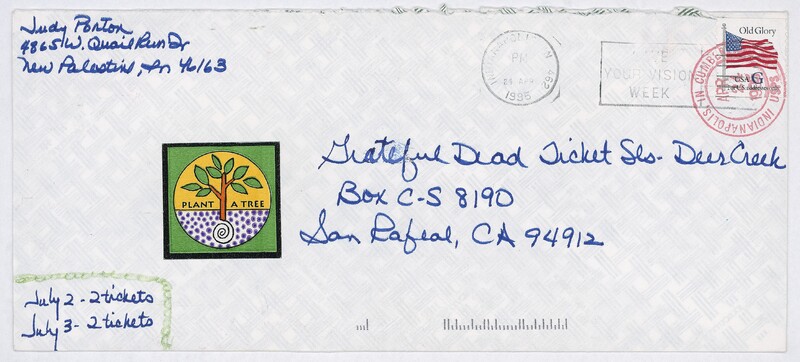 Judy Porton
4865 W. Quail Run Dr
New Palestine, In 46163
INDIANAPOLIS IN 462
PM
1995
YOUR VISION
WEEK
Old Glory
USA G
INDIANAPOLIS IN
USPS
Grateful Dead Ticket Sls - Deer Creek
Box C-S 8190
San Rafeal, CA 94912
PLANT A TREE
July 2 - 2 tickets
July 3 - 2 tickets